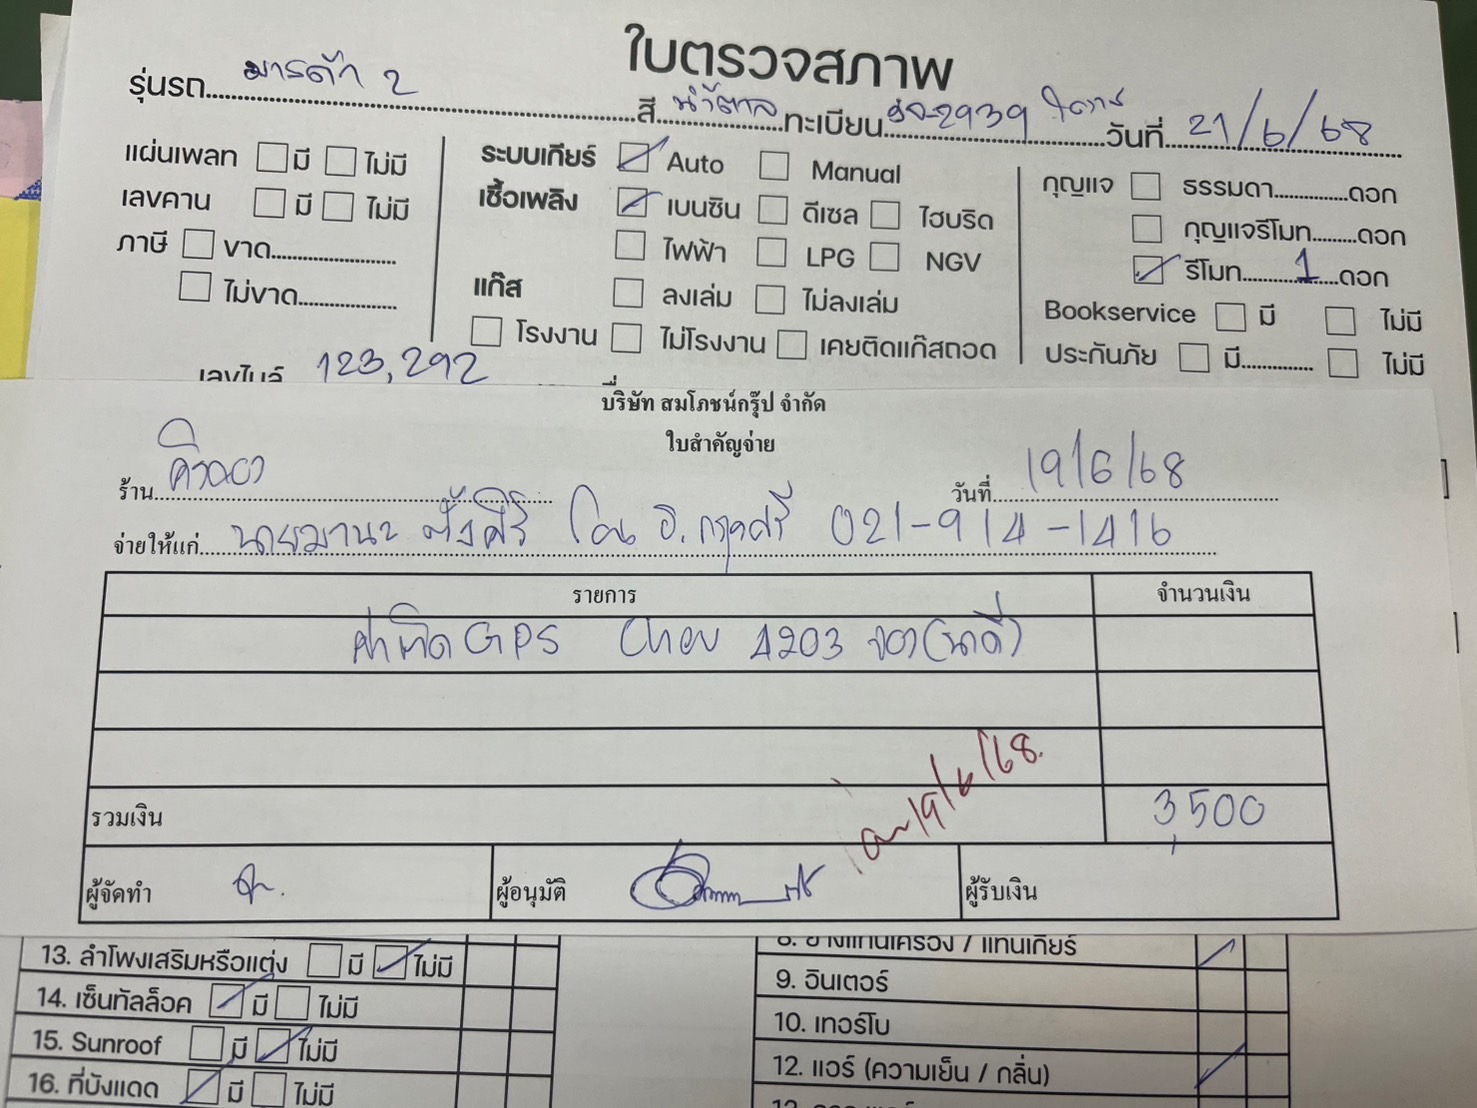 ใบตรวจสภาพ
รุ่นรถ มาสด้า 2 สี น้ำตาล ทะเบียน วันที่ 21/6/68
แผ่นเพลท มี ไม่มี
เลขคาน มี ไม่มี
ภาษี ขาด
ไม่ขาด
ระบบเกียร์ Auto Manual
เชื้อเพลิง เบนซิน ดีเซล ไฮบริด
ไฟฟ้า LPG NGV
แก๊ส ลงเล่ม ไม่ลงเล่ม
โรงงาน ไม่โรงงาน เคยติดแก๊สถอด
กุญแจ ธรรมดา ดอก
กุญแจรีโมท ดอก
รีโมท 1 ดอก
Bookservice มี ไม่มี
ประกันภัย มี ไม่มี
เลขไมล์ 123,292
บริษัท สมโภชน์กรุ๊ป จำกัด
ใบสำคัญจ่าย
ร้าน วันที่ 19/6/68
จ่ายให้แก่ นายมานะ โอน ธ.กรุงศรี 021-914-1416
รายการ จำนวนเงิน
ค่าติด GPS Chev 4203
รวมเงิน 3,500
19/6/68
ผู้จัดทำ ผู้อนุมัติ ผู้รับเงิน
13. ลำโพงเสริมหรือแต่ง มี ไม่มี
14. เซ็นทัลล็อค มี ไม่มี
15. Sunroof มี ไม่มี
16. ที่บังแดด มี ไม่มี
8. ยางแท่นเครื่อง / แท่นเกียร์
9. อินเตอร์
10. เทอร์โบ
12. แอร์ (ความเย็น / กลิ่น)